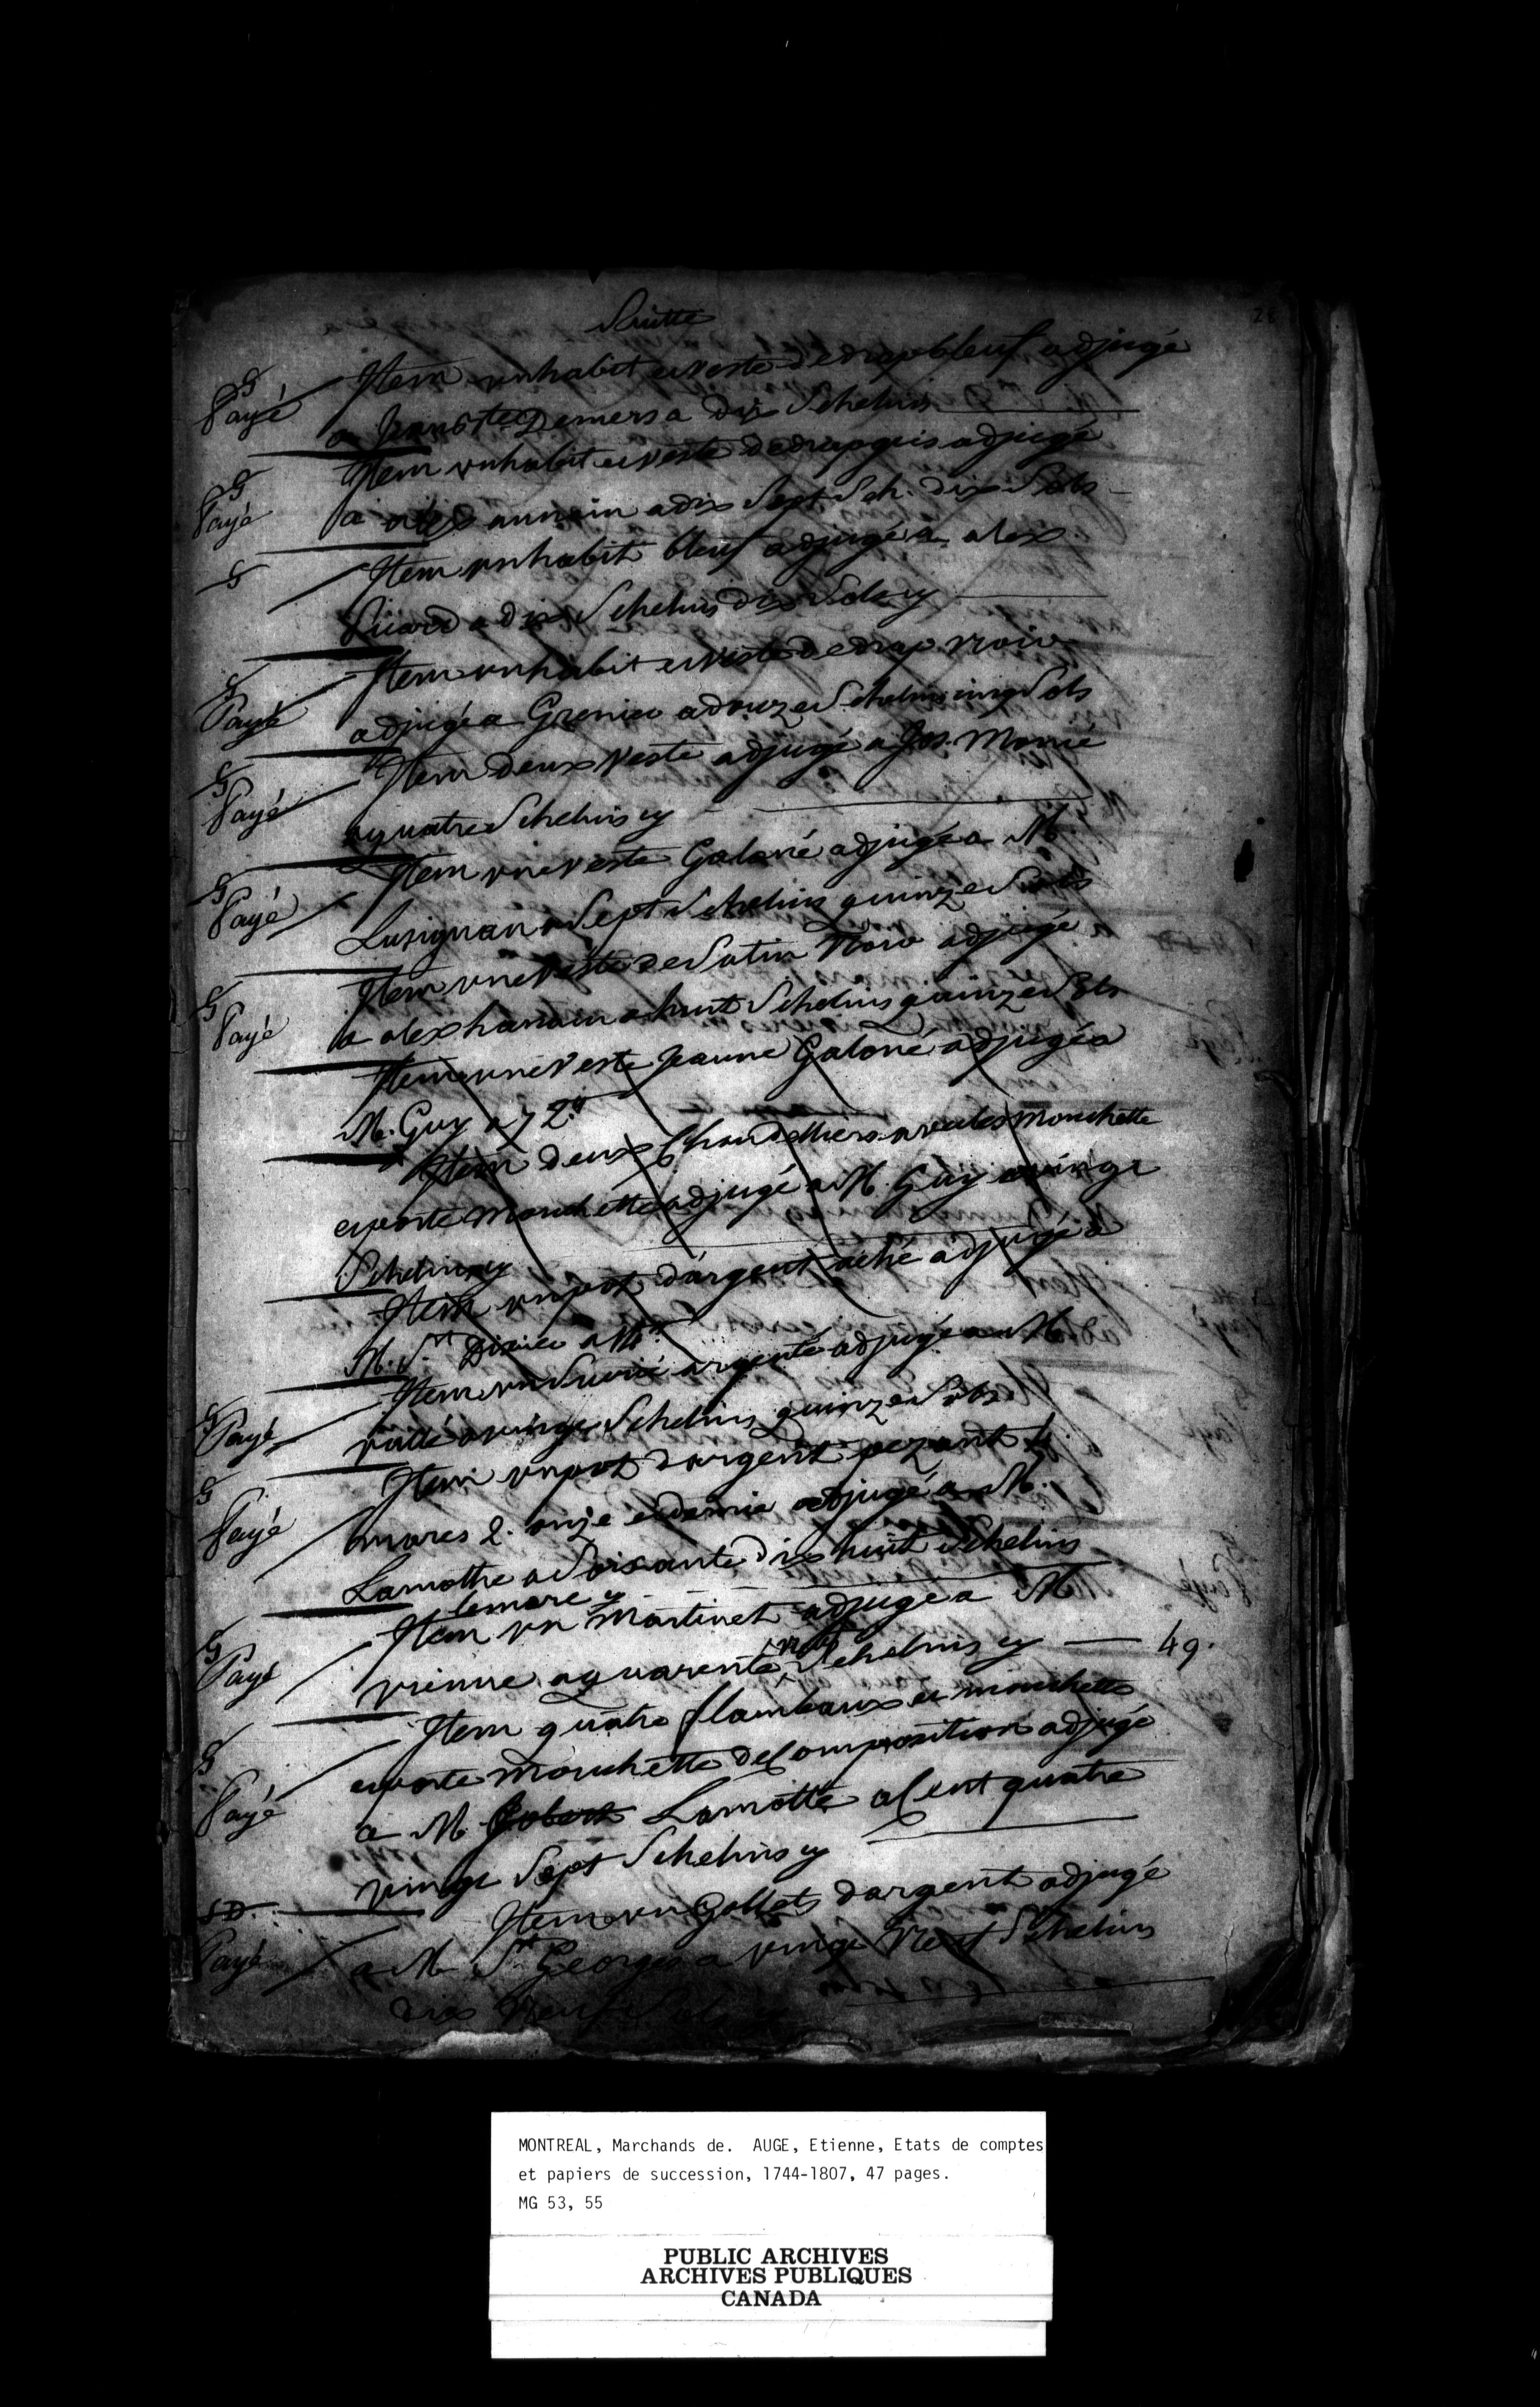 Suitte
28
G
Payé
Item un habit et veste de drap bleuf adjugé
a Jean Bte Demers a dix Schelins
G
Payé
Item un habit et veste de drap gris adjugé
a alex annain a dix Sept Sch. dix Sols
G
Item un habit bleuf adjugé a alex
Picard a dix Schelins dix Sols cy
G
Payé
Item un habit et veste de drap noir
adjugé a Grenier a douze Schelins cinq Sols
G
Payé
Item deux veste adjugé a Jos. Morné
a quatre Schelins cy
G
Payé
Item une veste Galoné adjugé a M.
Lusignan a Sept Schelins quinze Sols
G
Payé
Item une veste de Satin Noir adjugé
a alex hanain a huit Schelins quinze Sols
Item une veste Jaune Galoné adjugé a
M. Guy a 72.
Item deux Chandelliers avec les mouchette
et porte mouchette adjugé a M. Guy a vingt
Schelins cy
Item un pot d'argent aché adjugé a
M. St Dizier a
G
Payé
Item un Sucrié argenté adjugé a M
vallé a vingt Schelins quinze Sols
G
Payé
Item un pot d'argent pezant 4
mares 2. onze et demie adjugé a M.
Lamothe a Soixante dix huit Schelins
le marc cy
G
Payé
Item un Martinet adjugé a M
vienne a quarente neuf Schelins cy — 49.
G
Payé
Item quatre flambeaux et mouchette
et porte mouchette de Composition adjugé
a M. Lamotte a Cent quatre
vingt Sept Schelins cy
SD.
Payé
Item un Goblets d'argent adjugé
a M St George a vingt Neuf Schelins
dix Neuf Sols
MONTREAL, Marchands de. AUGE, Etienne, Etats de comptes
et papiers de succession, 1744-1807, 47 pages.
MG 53, 55
PUBLIC ARCHIVES
ARCHIVES PUBLIQUES
CANADA